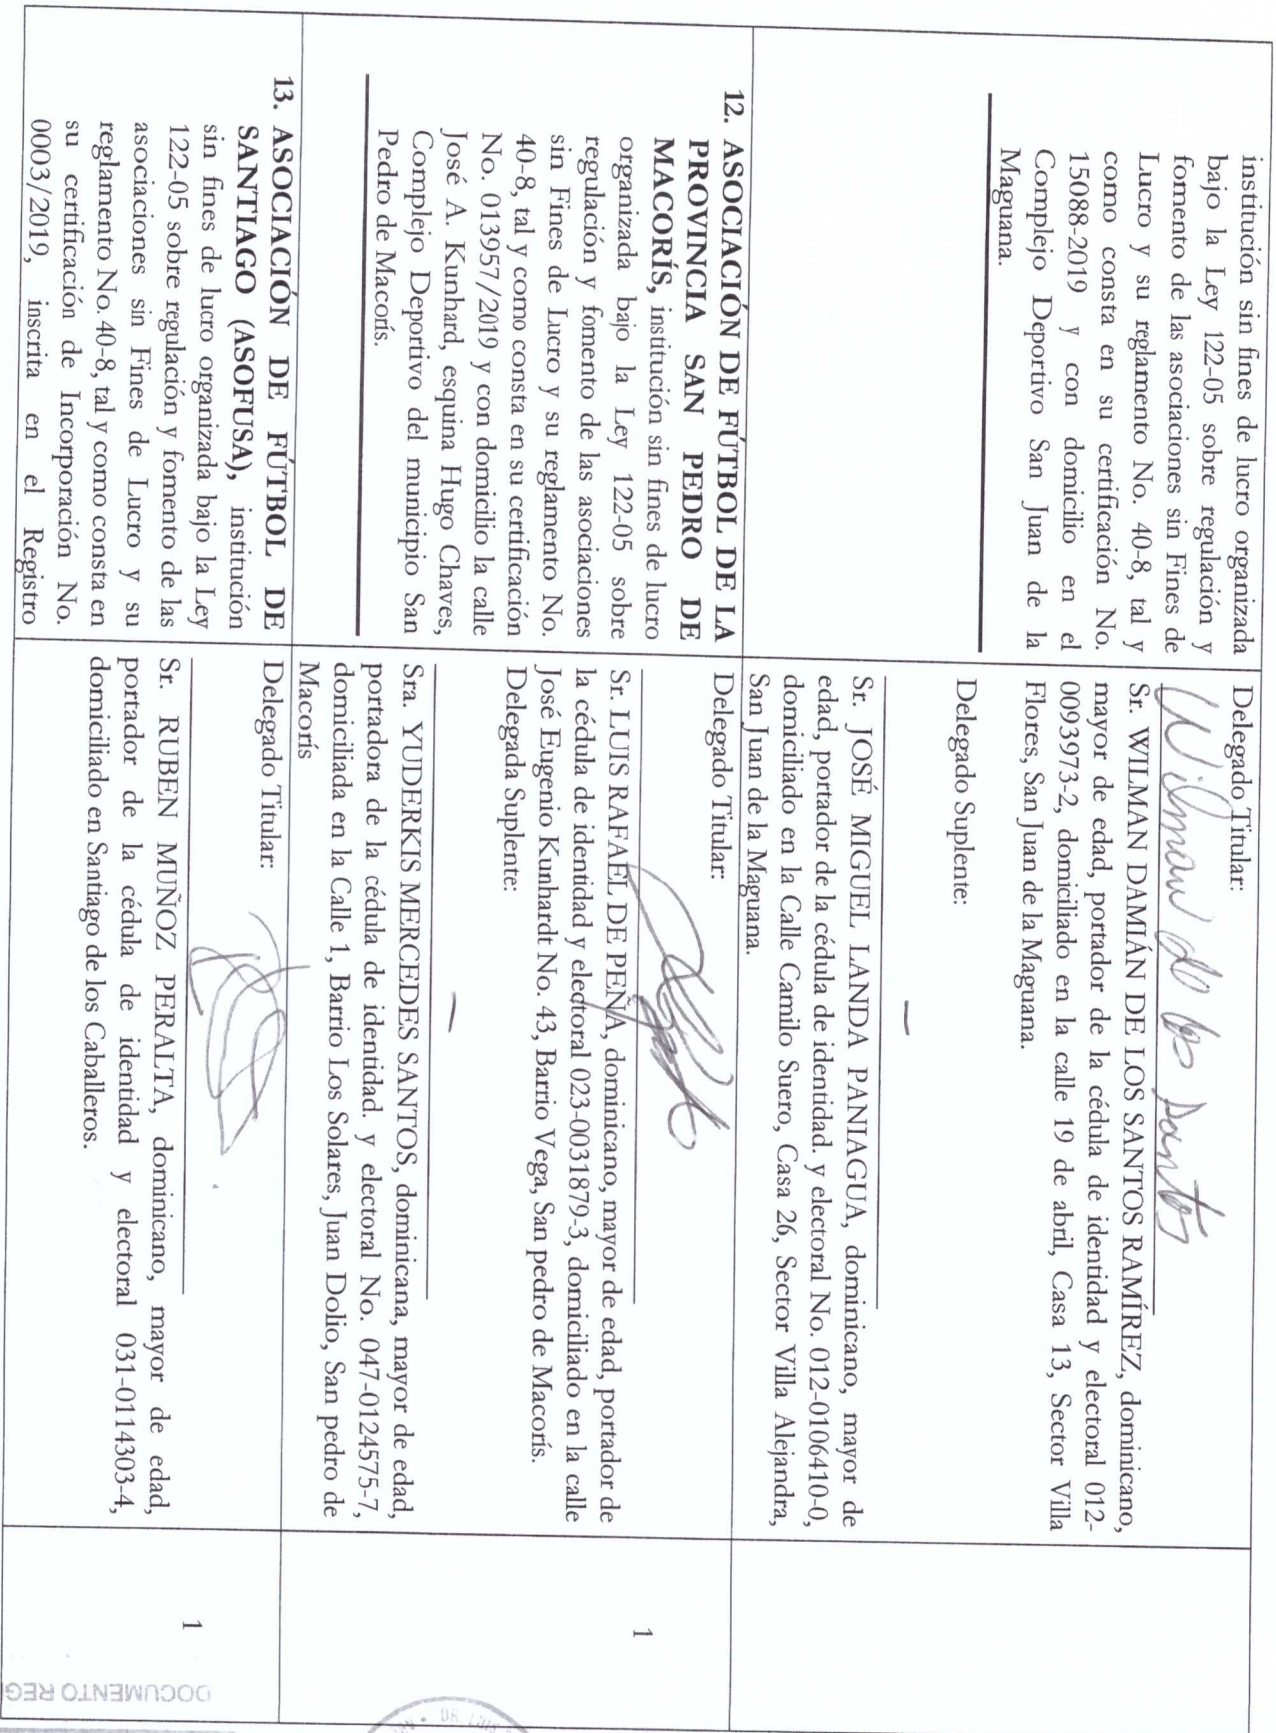 institución sin fines de lucro organizada
bajo la Ley 122-05 sobre regulación y
fomento de las asociaciones sin Fines de
Lucro y su reglamento No. 40-8, tal y
como consta en su certificación No.
15088-2019 y con domicilio en el
Complejo Deportivo San Juan de la
Maguana.
Delegado Titular:
Wilman de los Santos
Sr. WILMAN DAMIÁN DE LOS SANTOS RAMÍREZ, dominicano,
mayor de edad, portador de la cédula de identidad y electoral 012-
0093973-2, domiciliado en la calle 19 de abril, Casa 13, Sector Villa
Flores, San Juan de la Maguana.
Delegado Suplente:
Sr. JOSÉ MIGUEL LANDA PANIAGUA, dominicano, mayor de
edad, portador de la cédula de identidad. y electoral No. 012-0106410-0,
domiciliado en la Calle Camilo Suero, Casa 26, Sector Villa Alejandra,
San Juan de la Maguana.
12. ASOCIACIÓN DE FÚTBOL DE LA
PROVINCIA SAN PEDRO DE
MACORÍS, institución sin fines de lucro
organizada bajo la Ley 122-05 sobre
regulación y fomento de las asociaciones
sin Fines de Lucro y su reglamento No.
40-8, tal y como consta en su certificación
No. 013957/2019 y con domicilio la calle
José A. Kunhard, esquina Hugo Chaves,
Complejo Deportivo del municipio San
Pedro de Macorís.
Delegado Titular:
Sr. LUIS RAFAEL DE PEÑA, dominicano, mayor de edad, portador de
la cédula de identidad y electoral 023-0031879-3, domiciliado en la calle
José Eugenio Kunhardt No. 43, Barrio Vega, San pedro de Macorís.
Delegada Suplente:
Sra. YUDERKIS MERCEDES SANTOS, dominicana, mayor de edad,
portadora de la cédula de identidad. y electoral No. 047-0124575-7,
domiciliada en la Calle 1, Barrio Los Solares, Juan Dolio, San pedro de
Macorís
1
13. ASOCIACIÓN DE FÚTBOL DE
SANTIAGO (ASOFUSA), institución
sin fines de lucro organizada bajo la Ley
122-05 sobre regulación y fomento de las
asociaciones sin Fines de Lucro y su
reglamento No. 40-8, tal y como consta en
su certificación de Incorporación No.
0003/2019, inscrita en el Registro
Delegado Titular:
Sr. RUBEN MUÑOZ PERALTA, dominicano, mayor de edad,
portador de la cédula de identidad y electoral 031-0114303-4,
domiciliado en Santiago de los Caballeros.
1
DOCUMENTO REG